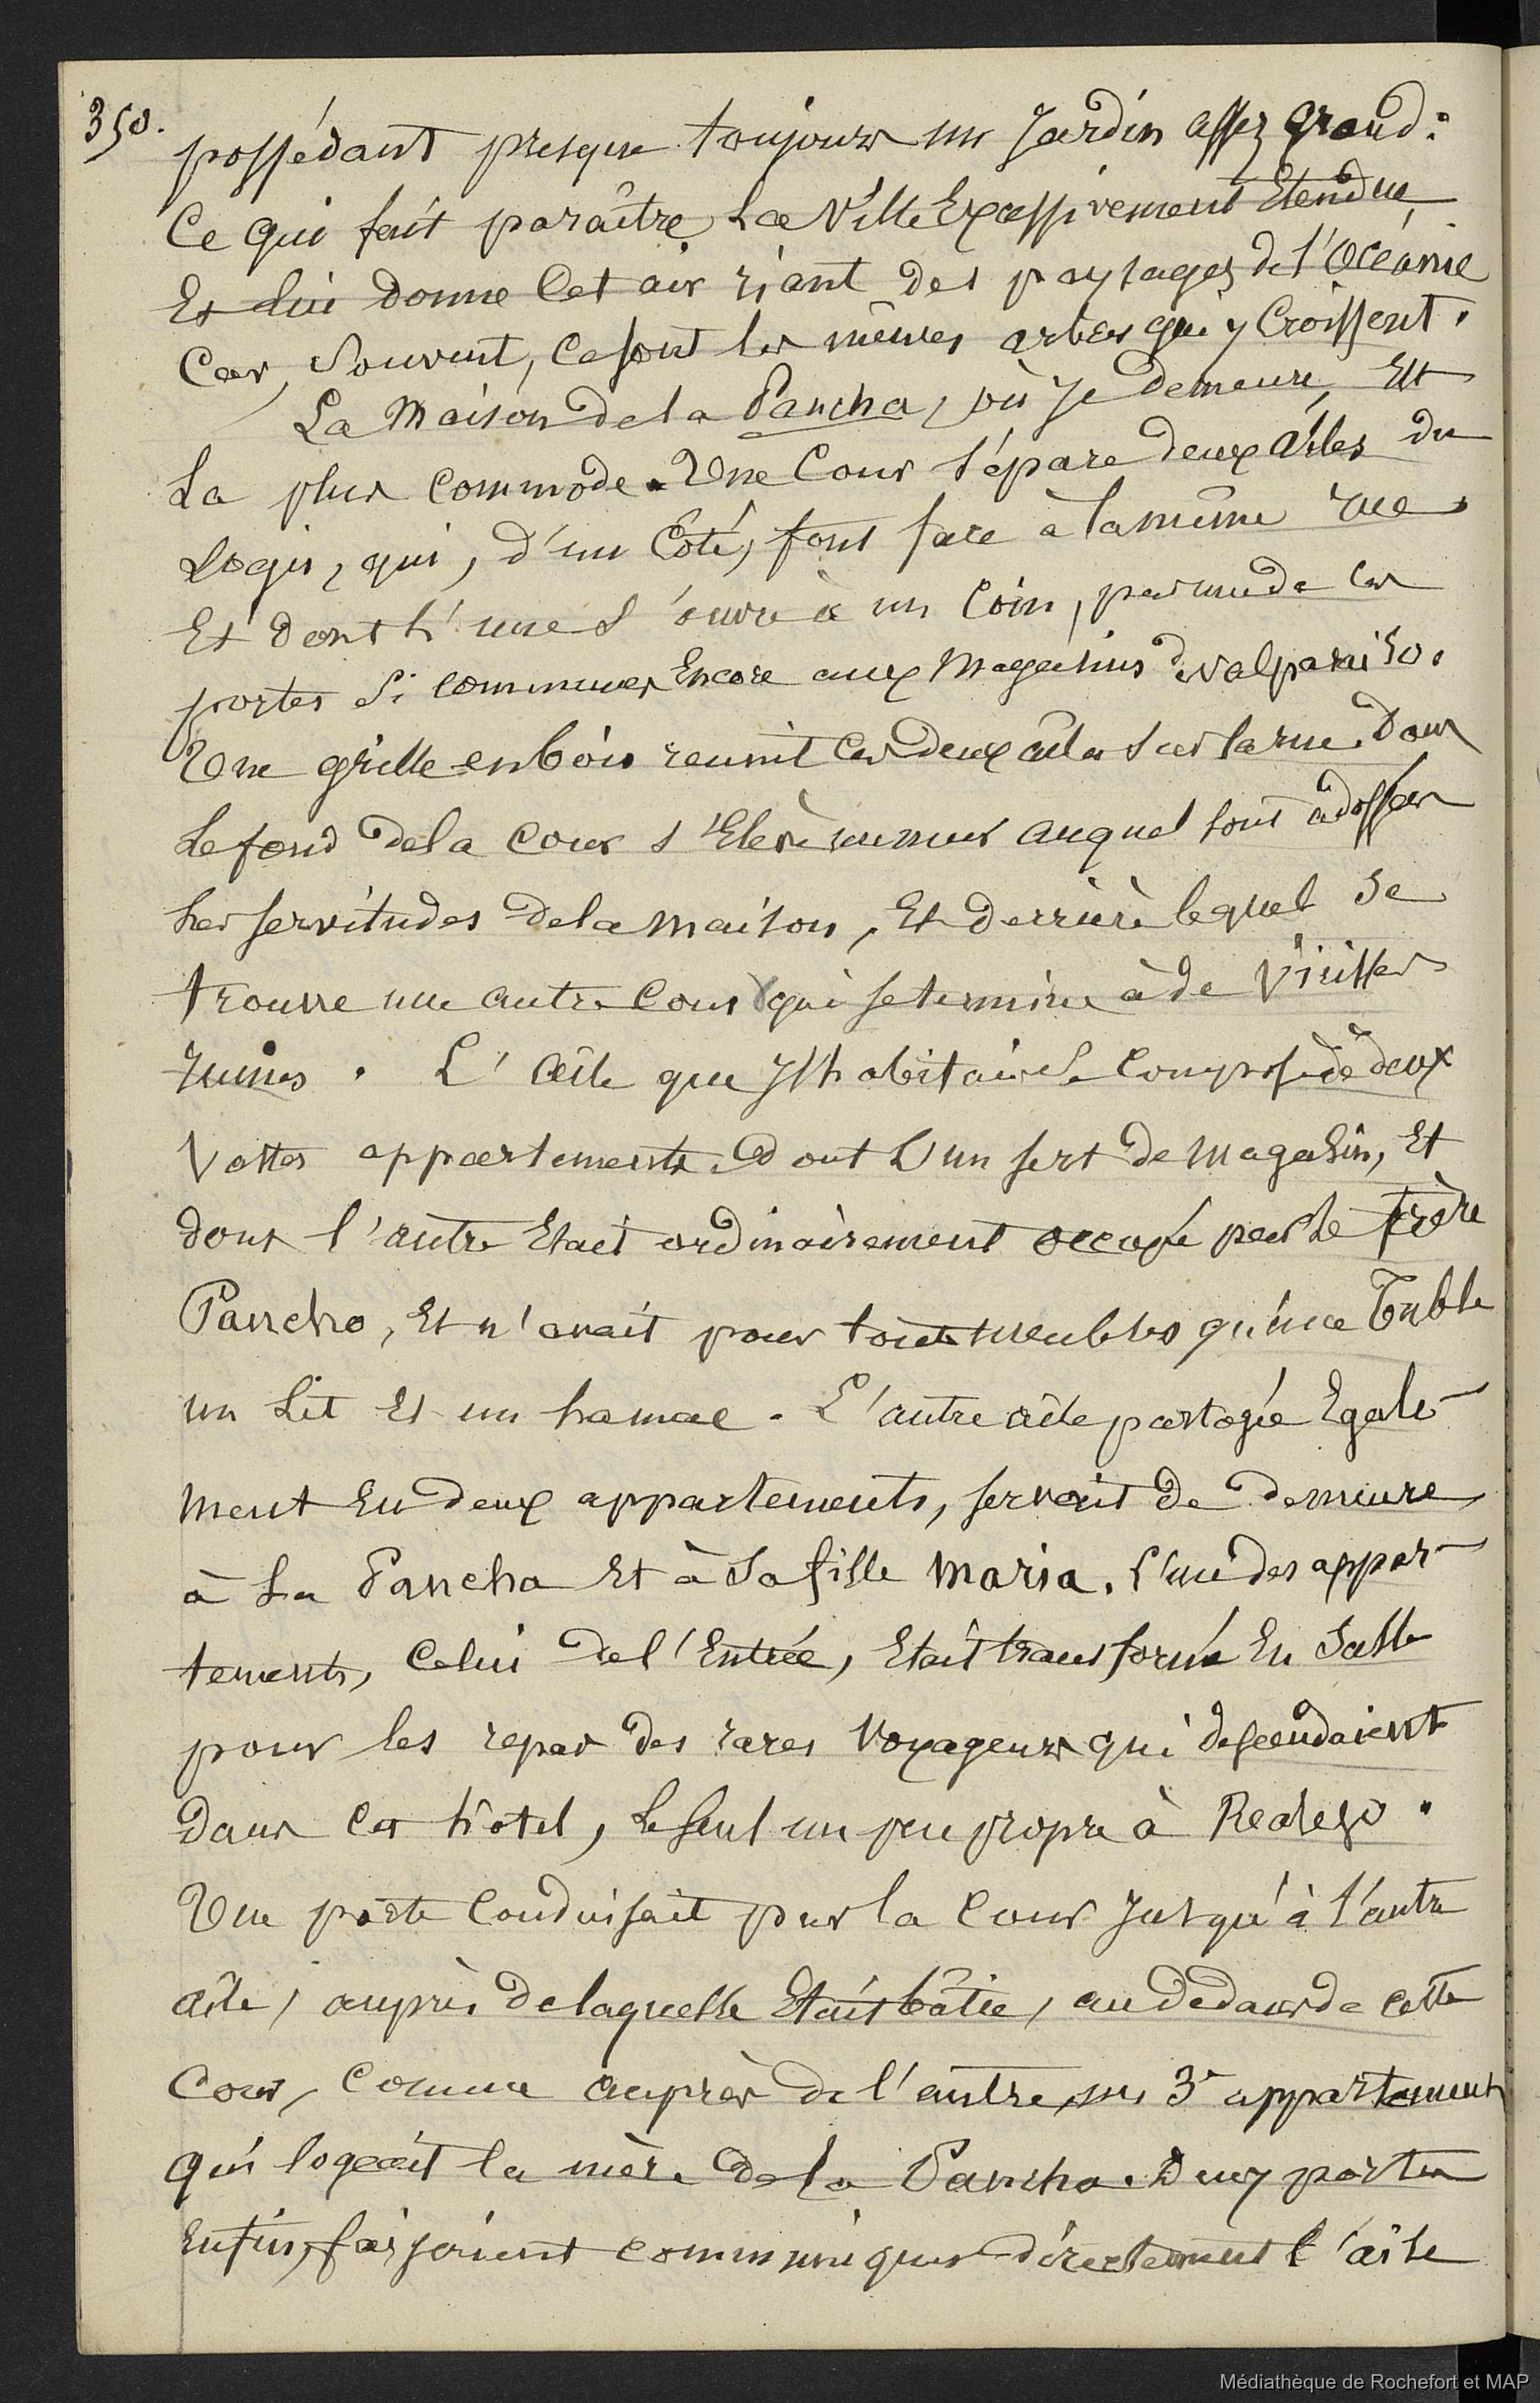 350.
possédant presque toujours un Jardin assez grand :
Ce qui fait paraître La Ville Excessivement Etendue
Et lui donne Cet air riant des paysages de l'Océanie
Car, Souvent, Ce sont les mêmes arbres qui y Croissent.
La Maison de la Pancha, où Je demeure, Est
La plus Commode. Une Cour sépare deux aîles du
Logis, qui, d'un Côté, font face à la même rue
Et dont l'une s'ouvre à un Coin, par une de ces
portes Si communes Encore aux Magasins de Valparaiso.
Une grille en bois reunit Ces deux aîles sur la rue. Dans
Le fond de la Cour s'Elève un mur auquel sont adossées
Les servitudes de la Maison, Et derrière lequel se
trouve une autre Cour qui se termine à de Vieilles
ruines. L'aîle que J'habitais Se Compose de deux
Vastes appartements, dont L'un sert de Magasin, Et
dont l'autre Etait ordinairement occupé par le frère
Pancho, Et n'avait pour tout meubles qu'une Table
un Lit Et un hamac. L'autre aîle partagée Egale-
ment En deux appartements, servait de demeure
à La Pancha Et à Sa fille Maria. L'un des appar-
tements, Celui de l'Entrée, Etait transformé En Salle
pour les repas des rares Voyageurs qui descendaient
dans Cet hôtel, Le seul un peu propre à Realejo.
Une porte Conduisait par la Cour Jusqu'à l'autre
aîle, auprès de laquelle Etait bâtie, au dedans de cette
Cour, Comme auprès de l'autre, un 3e appartement
qui logeait la mère de la Pancha. Deux portes
Enfin, faisaient communiquer directement l'aîle
Médiathèque de Rochefort et MAP